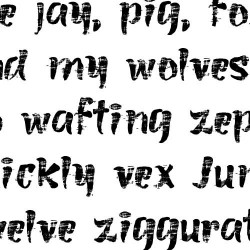 e jay, pig, fo
nd my wolves
wafting zep
ickly vex Jun
elve ziggurat